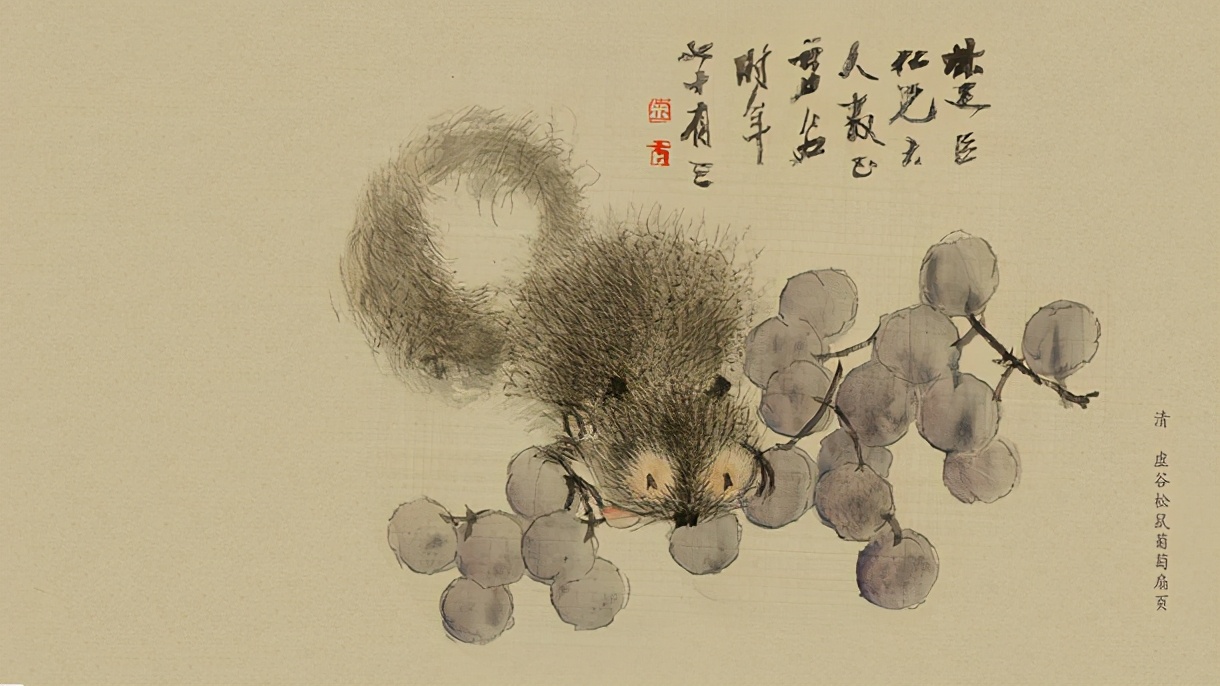 仁兄大
人教正
虚谷
时年
七十有三
虚
谷
清 虚谷松鼠葡萄扇页